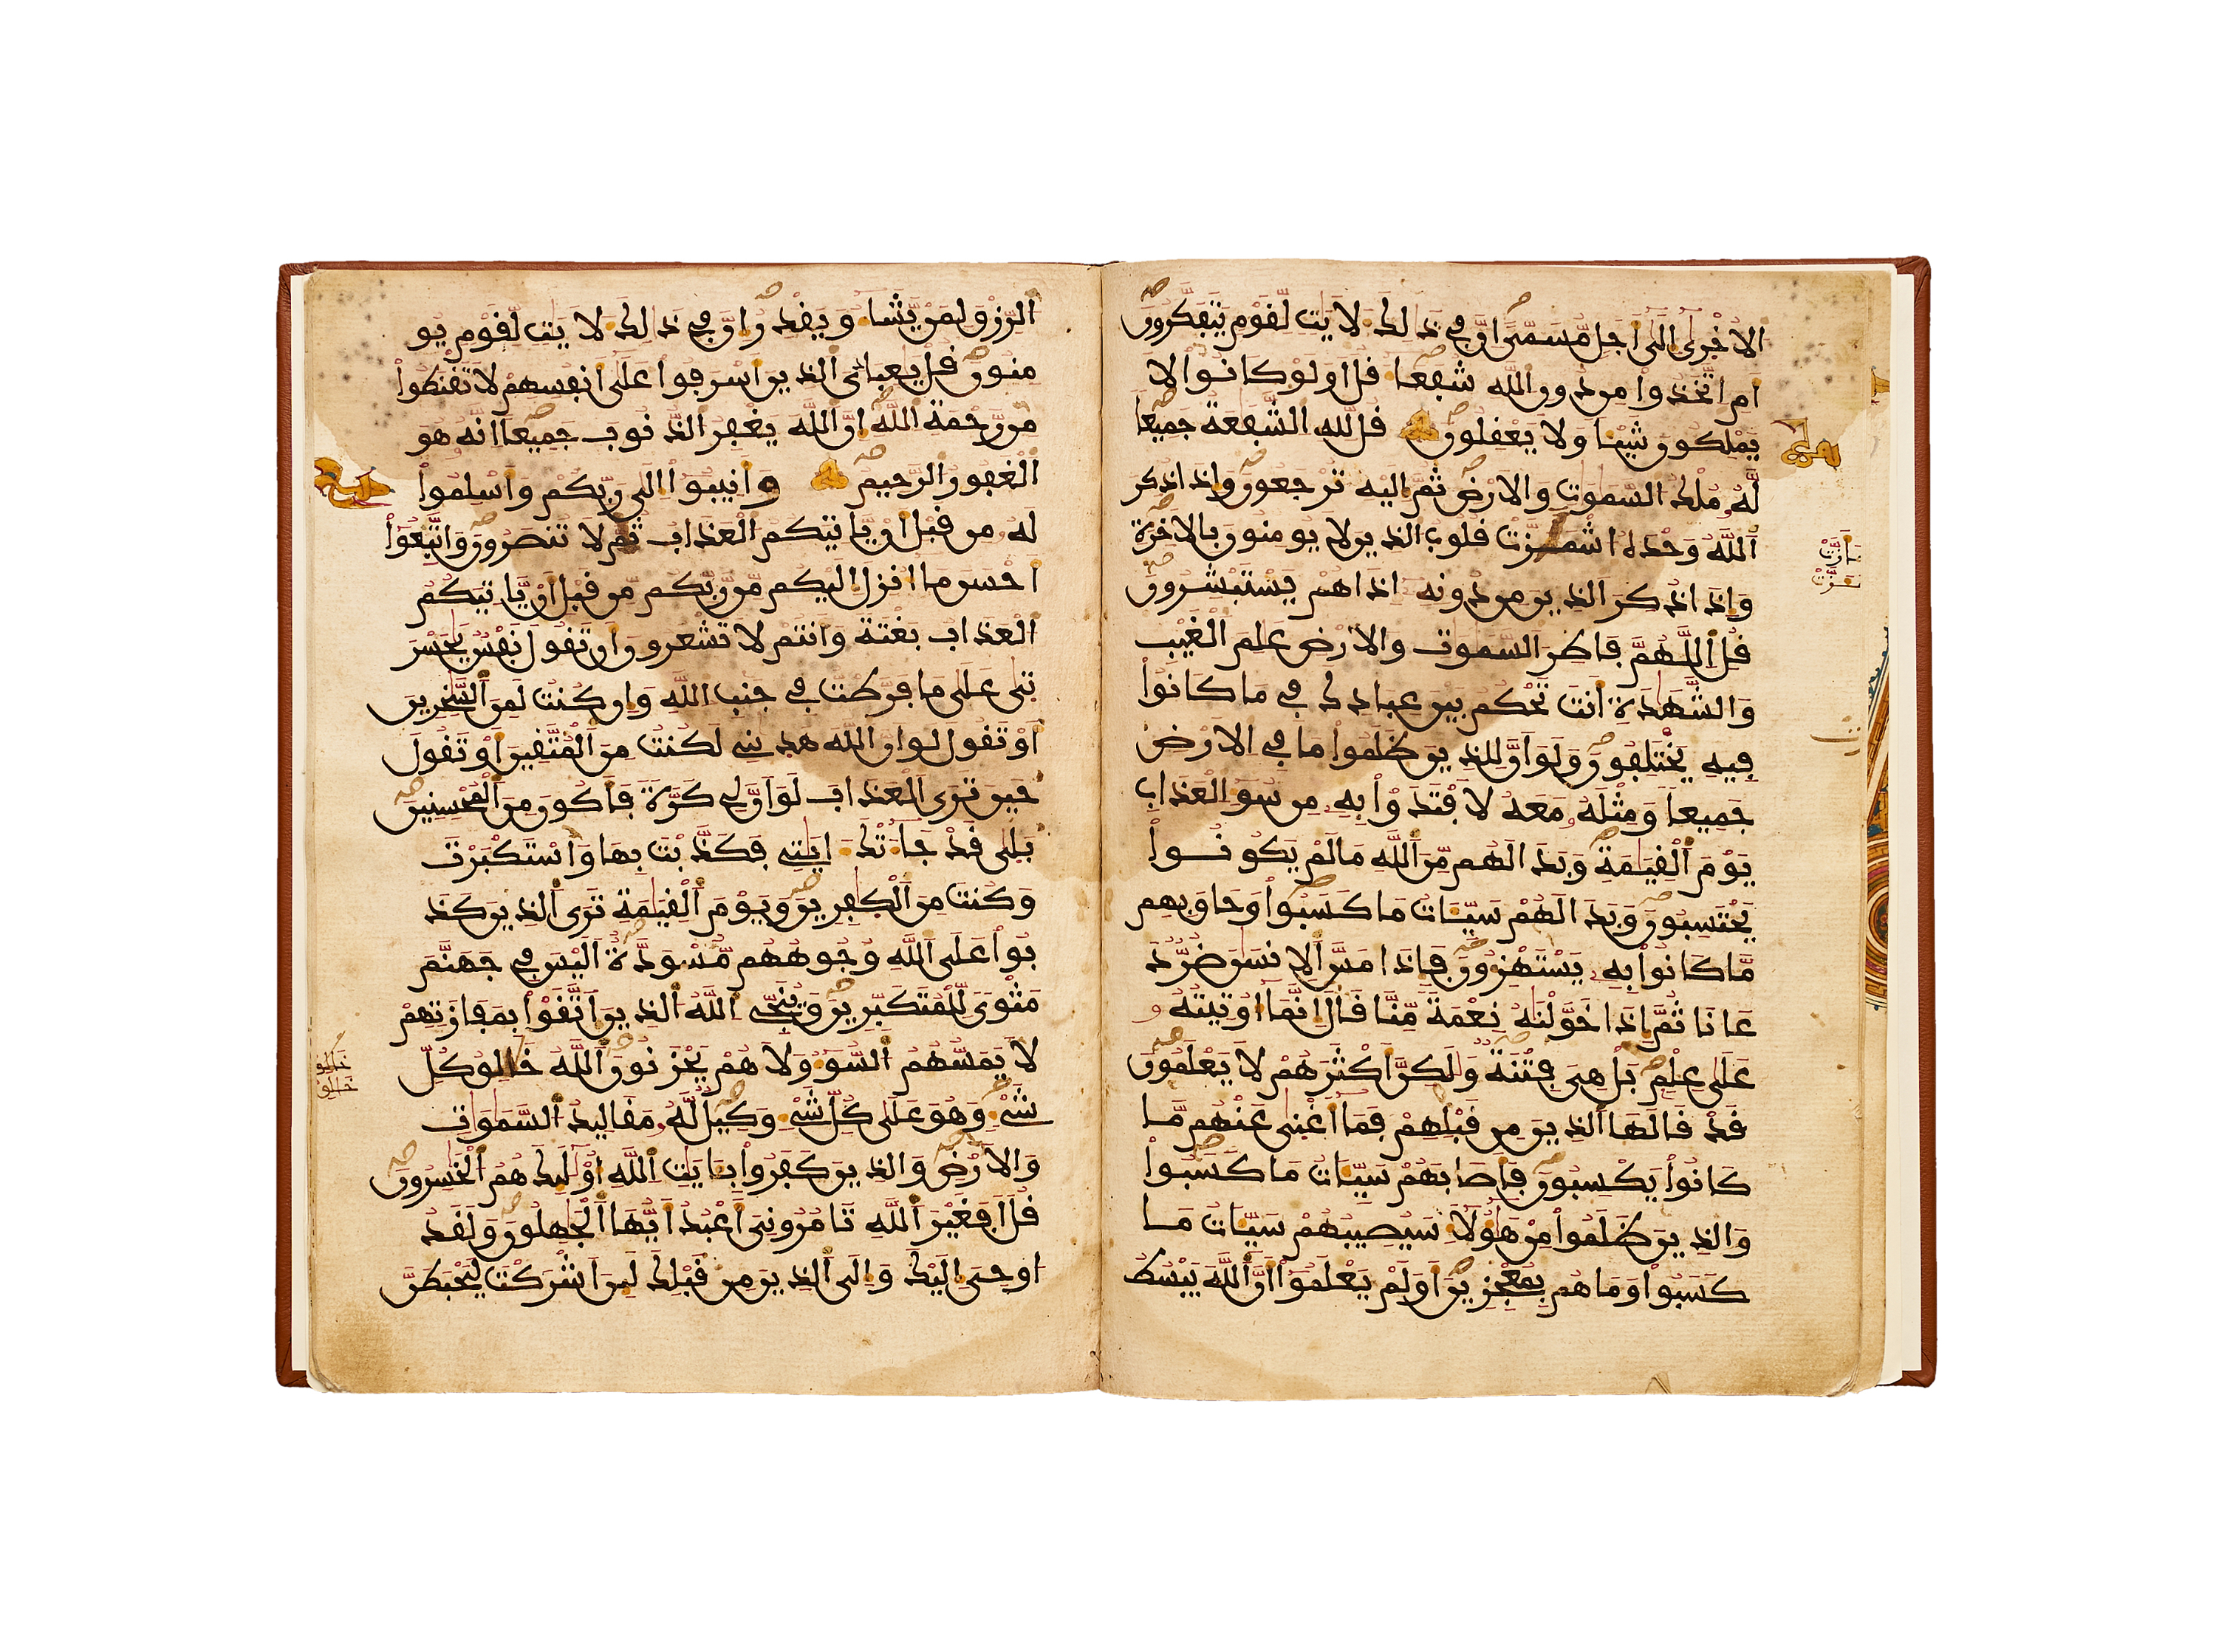 الاخرى الى أجل مسمى ان في ذلك لايت لقوم يتفكرون
ام اتخذوا من دون الله شفعا قل اولو كانوا لا
يملكون شيا ولا يعقلون قل لله الشفعة جميعا
له ملك السموت والارض ثم اليه ترجعون واذا ذكر
الله وحده اشمزت قلوب الذين لا يومنون بالاخرة
واذا ذكر الذين من دونه اذا هم يستبشرون
قل اللهم فاطر السموت والارض علم الغيب
والشهدة انت تحكم بين عبادك في ما كانوا
فيه يختلفون ولو ان للذين ظلموا ما في الارض
جميعا ومثله معه لافتدوا به من سو العذاب
يوم القيمة وبدا لهم من الله ما لم يكونوا
يحتسبون وبدا لهم سيات ما كسبوا وحاق بهم
ما كانوا به يستهزون فاذا مس الانسن ضر د
عانا ثم اذا خولنه نعمة منا قال انما اوتيته
على علم بل هي فتنة ولكن اكثرهم لا يعلمون
قد قالها الذين من قبلهم فما اغنى عنهم ما
كانوا يكسبون فاصابهم سيات ما كسبوا
والذين ظلموا من هولا سيصيبهم سيات ما
كسبوا وما هم بمعجزين اولم يعلموا ان الله يبسط
الرزق لمن يشا ويقدر ان في ذالك لايت لقوم يو
منون قل يعبادي الذين اسرفوا على انفسهم لا تقنطوا
من رحمة الله ان الله يغفر الذنوب جميعا انه هو
الغفور الرحيم وانيبوا الى ربكم واسلموا
له من قبل ان ياتيكم العذاب ثم لا تنصرون واتبعوا
احسن ما انزل اليكم من ربكم من قبل ان ياتيكم
العذاب بغتة وانتم لا تشعرون ان تقول نفس يحسر
تى على ما فرطت في جنب الله وان كنت لمن السخرين
او تقول لو ان الله هدني لكنت من المتقين او تقول
حين ترى العذاب لو ان لي كرة فاكون من المحسنين
بلى قد جاتك ايتي فكذبت بها واستكبرت
وكنت من الكفرين ويوم القيمة ترى الذين كذ
بوا على الله وجوههم مسودة اليس في جهنم
مثوى للمتكبرين وينجي الله الذين اتقوا بمفازتهم
لا يمسهم السو ولا هم يحزنون الله خالق كل
شي وهو على كل شي وكيل له مقاليد السموات
والارض والذين كفروا بايت الله اولك هم الخسرون
قل افغير الله تامروني اعبد ايها الجهلون ولقد
اوحي اليك والى الذين من قبلك لين اشركت ليحبطن